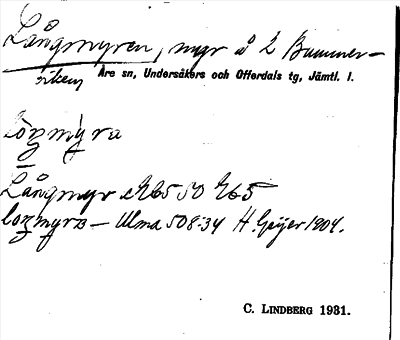 Långmyren, myr å 2 Bummer-
viken
Åre sn, Undersåkers och Offerdals tg, Jämtl. l.
löŋmỳra
Långmyr
loŋmyra — Ulma 508:34 H. Geijer 1904.
C. LINDBERG 1931.